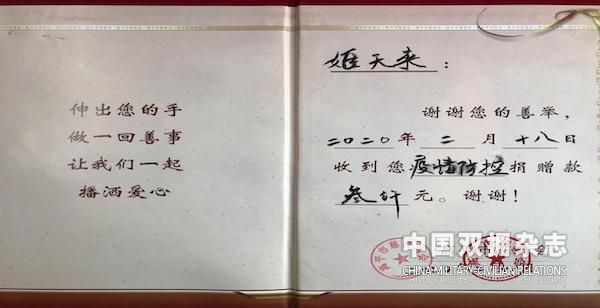 伸出您的手
做一回善事
让我们一起
播洒爱心
姬天来：
谢谢您的善举，
二〇二〇年二月十八日
收到您疫情防控捐赠款
叁仟元。谢谢！
中国双拥杂志
CHINA MILITARY-CIVILIAN RELATIONS